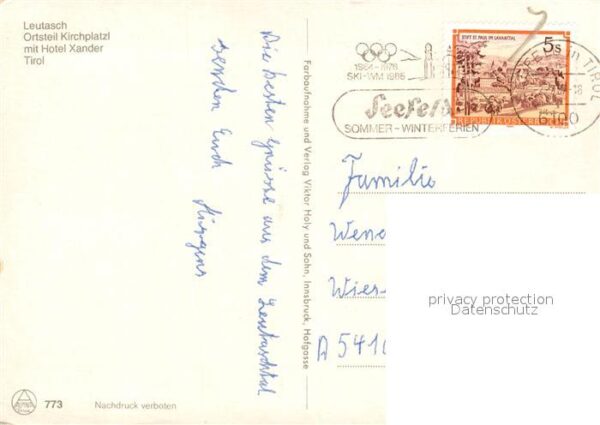 Leutasch
Ortsteil Kirchplatzl
mit Hotel Xander
Tirol
Die besten Grüsse aus dem Leutaschtal
senden Euch
Farbaufnahme und Verlag Viktor Holy und Sohn, Innsbruck, Hofgasse
1964-1976
SKI-WM 1985
Seefeld
SOMMER-WINTERFERIEN
STIFT ST. PAUL IM LAVANTTAL
5s
REPUBLIK ÖSTERREICH
TIROL
6100
Familie
A 5410
privacy protection
Datenschutz
773
Nachdruck verboten